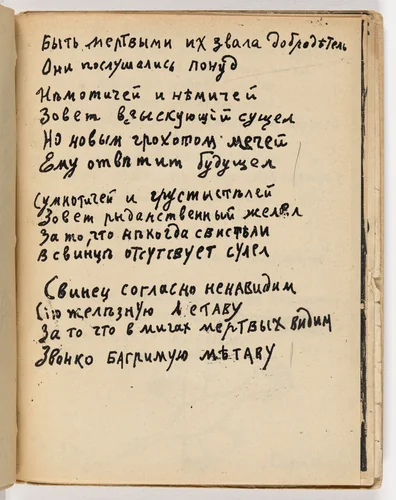 Быть мертвыми их звала добродѣтель
Они послушались понуд
Нѣмотичей и нѣмичей
Зовет взыскующій сущел
Но новым грохотом мечей
Ему отвѣтит будущел
Сумнотичей и грустистелей
Зовет рыданственный желел
За то, что нѣкогда свистѣли
В свинцѣ отсутсвует сулел
Свинец согласно ненавидим
Сію желѣзную летаву
За то что в мигах мертвых видим
Звонко багримую мѣтаву